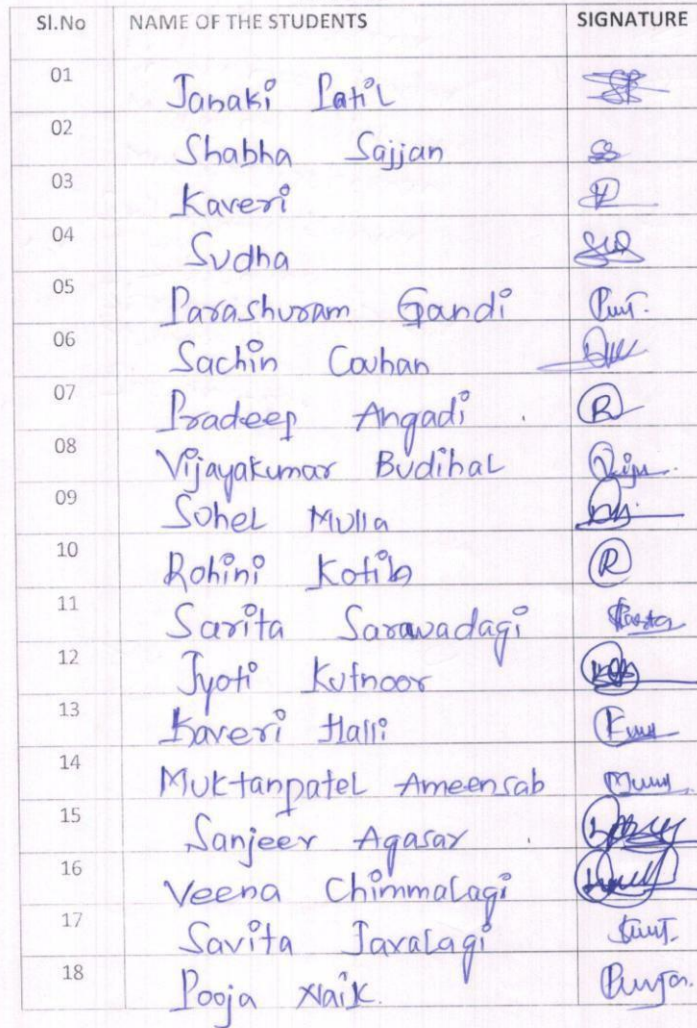 Sl.No NAME OF THE STUDENTS SIGNATURE
01 Janaki Patil
02 Shabha Sajjan
03 Kaveri
04 Sudha
05 Parashuram Gandi
06 Sachin Couhan
07 Pradeep Angadi
08 Vijayakumar Budihal
09 Sohel Mulla
10 Rohini
11 Sarita Sarawadagi
12 Jyoti Kutnoor
13 Kaveri Halli
14 Muktanpatel Ameensab
15 Sanjeev Agasar
16 Veena Chimmalagi
17 Savita Javalagi
18 Pooja Naik.